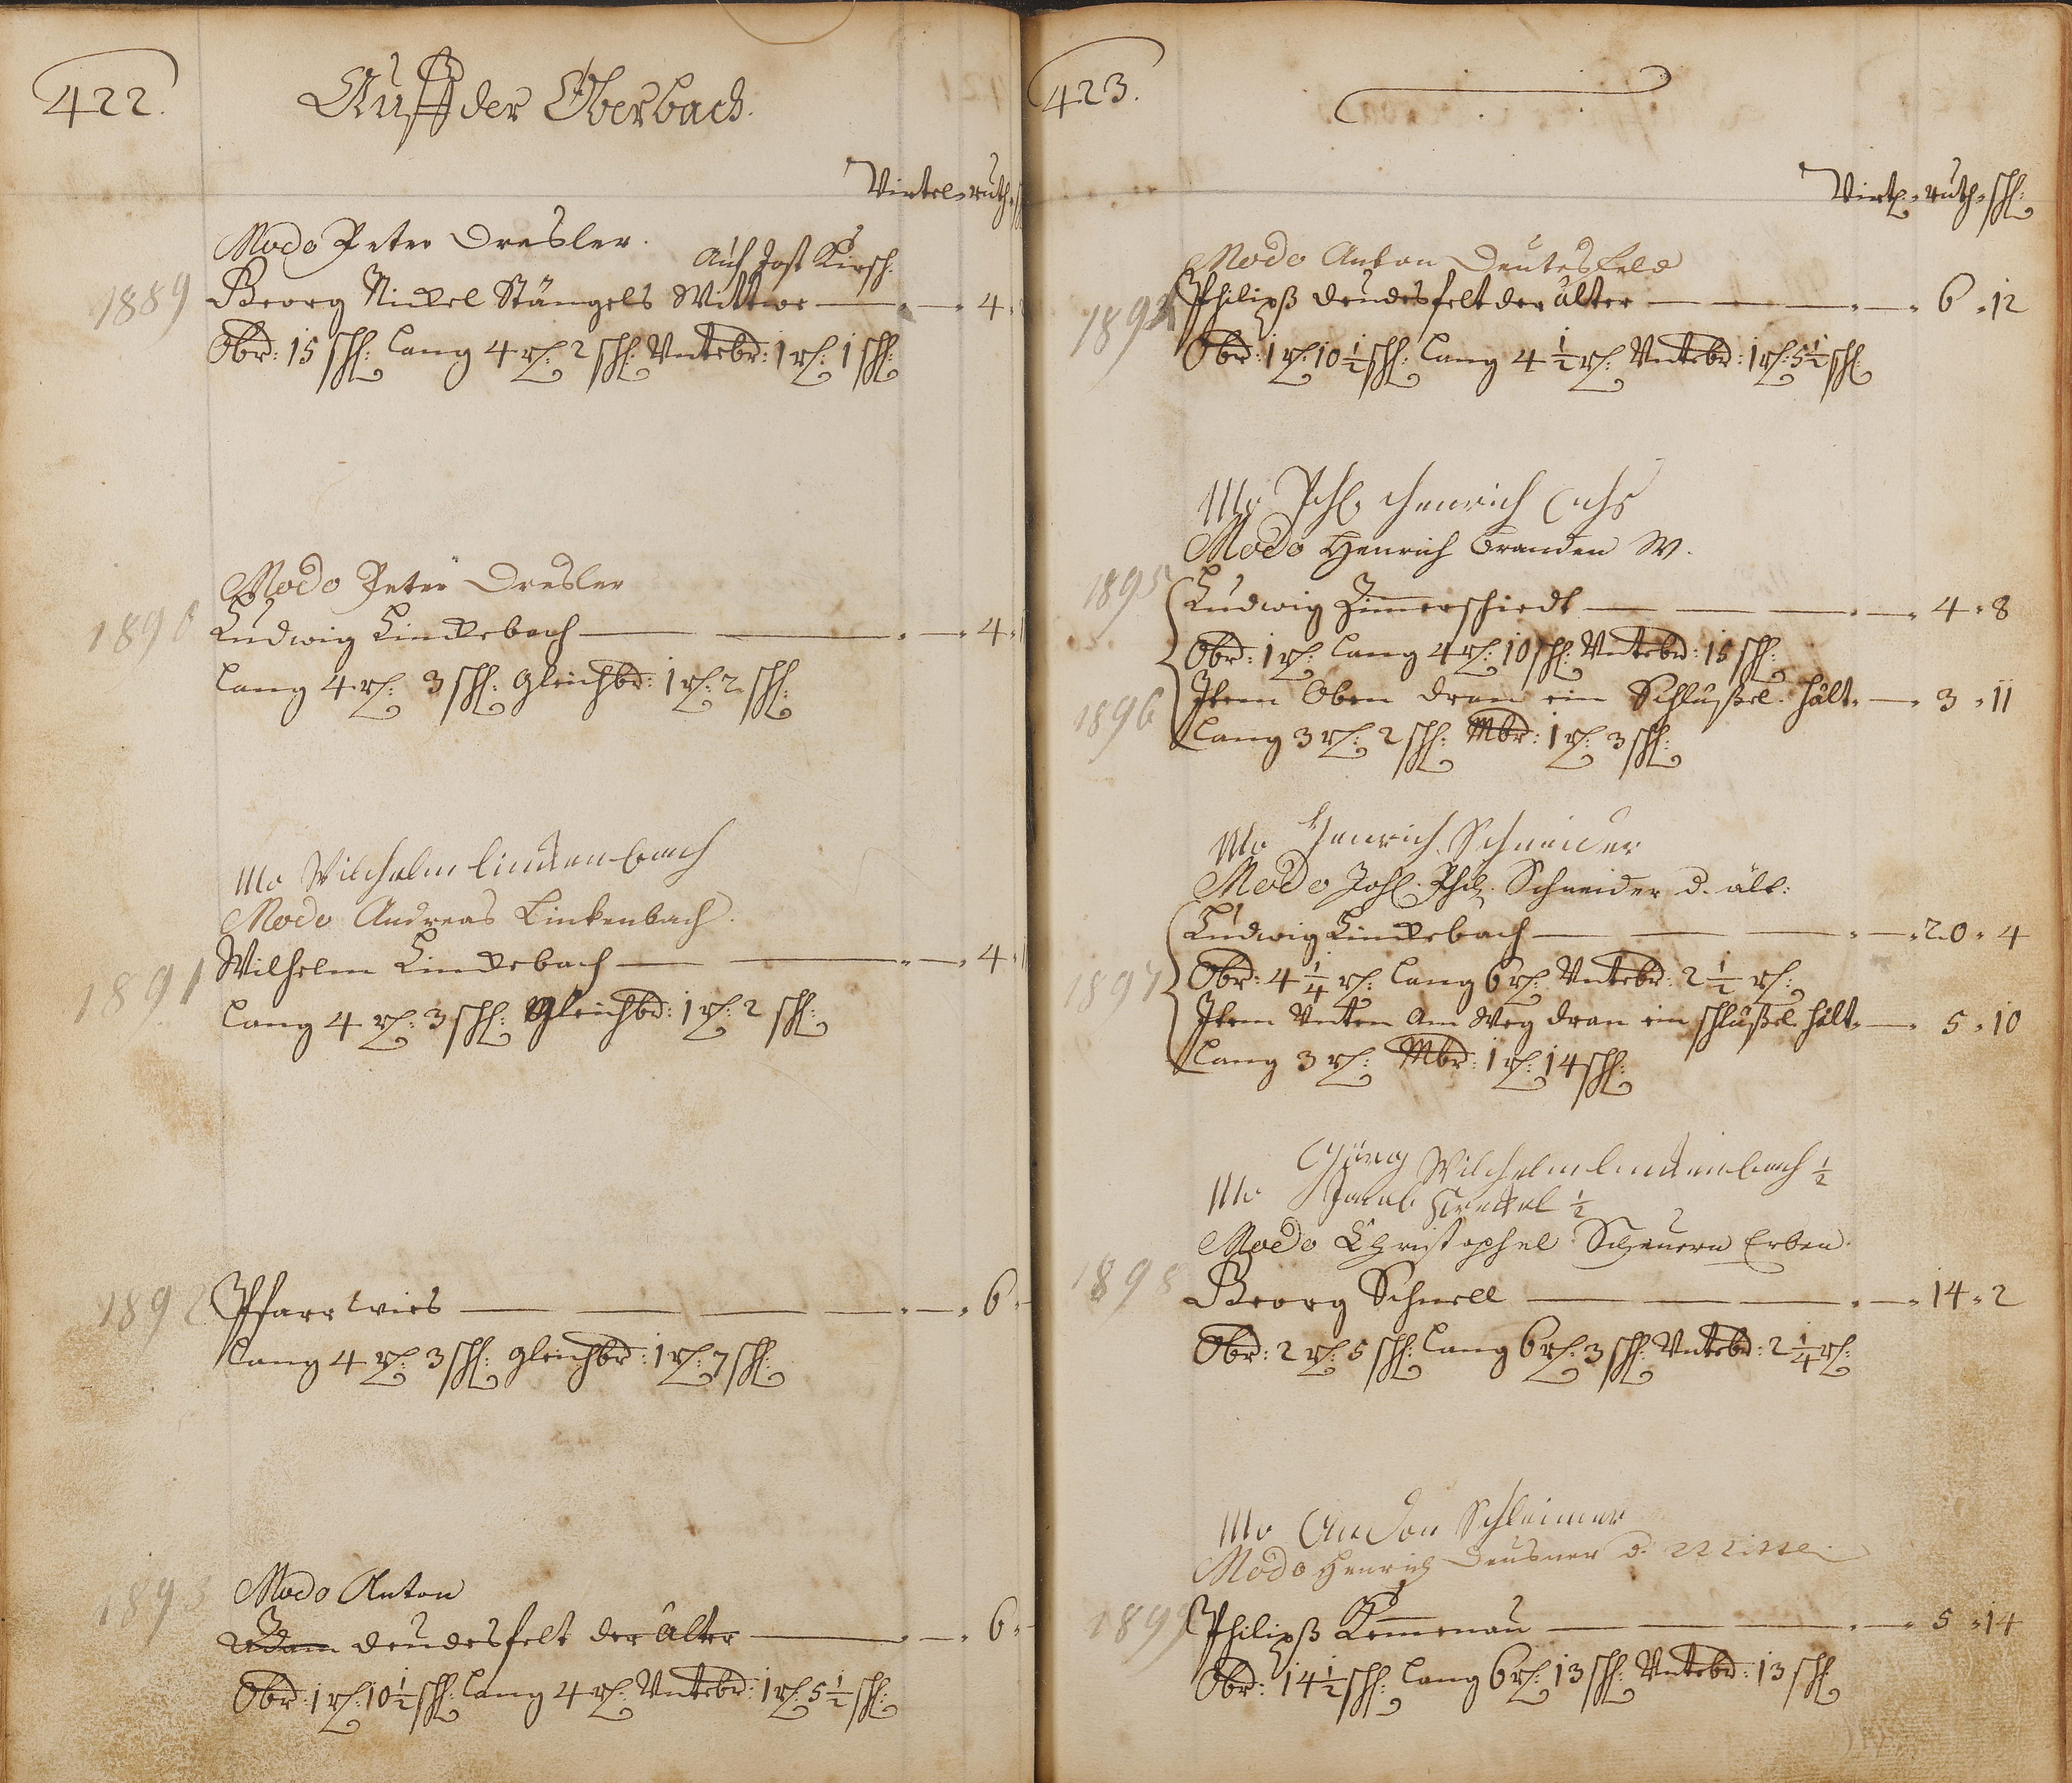 422.
Auff der Oberbach.
Virtel ruth
Modo Peter Dresler.
Auf Jost Kirsch.
1889 Georg Nickel Stängels Wittwe — 4
Obr: 15 sch: Lang 4 r: 2 sch: Untebr: 1 r: 1 sch:
Modo Peter Dresler
1890 Ludwig Linckebach — 4
Lang 4 r: 3 sch: gleichbr: 1 r: 2 sch:
Mo Wilhelm linckenbach
Modo Andreas Linkenbach.
1891 Wilhelm Linckebach — 4
Lang 4 r: 3 sch: gleichbr: 1 r: 2 sch:
1892 Pfarr wies — 6
Lang 4 r: 3 sch: gleichbr: 1 r: 7 sch:
Modo Anton
1893 Adam deudesfelt der älter — 6
Obr: 1 r: 10 ½ sch: Lang 4 r: Untebr: 1 r: 5 ½ sch:
423.
Virt: ruth sch:
Modo Anton Deutesfeld
1894 Philipß deudesfelt der älter — 6 12
Obr: 1 r: 10 ½ sch: Lang 4 ½ r: Untebr: 1 r: 5 ½ sch:
Mo Phl Henrich
Modo Henrich Branden W.
1895 Ludwig Zimmerschiedt — 4 8
Obr: 1 r: Lang 4 r: 10 sch: Untebr: 15 sch:
1896 Item Oben dran ein Schlüßel hält — 3 11
Lang 3 r: 2 sch: Mbr: 1 r: 3 sch:
Mo Henrich Schneider
Modo Joh. Phil. Schneider d. ält:
Ludwig Linckebach — 20 4
1897 Obr: 4 ¼ r: Lang 6 r: Untebr: 2 ½ r:
Item Unten am Weg dran ein schlüßel hält — 5 10
Lang 3 r: Mbr: 1 r: 14 sch:
Görg Wilhelm linckenbach ½
Mo Jacob ½
Modo Christophel Scheuern Erben.
1898 Georg Schnell — 14 2
Obr: 2 r: 5 sch: Lang 6 r: 3 sch: Untebr: 2 ¼ r:
Mo Andon Schleimer
Modo Henrich Deusner d. mitte.
1899 Philipß Kemmenau — 5 14
Obr: 14 ½ sch: Lang 6 r: 13 sch: Untebr: 13 sch: